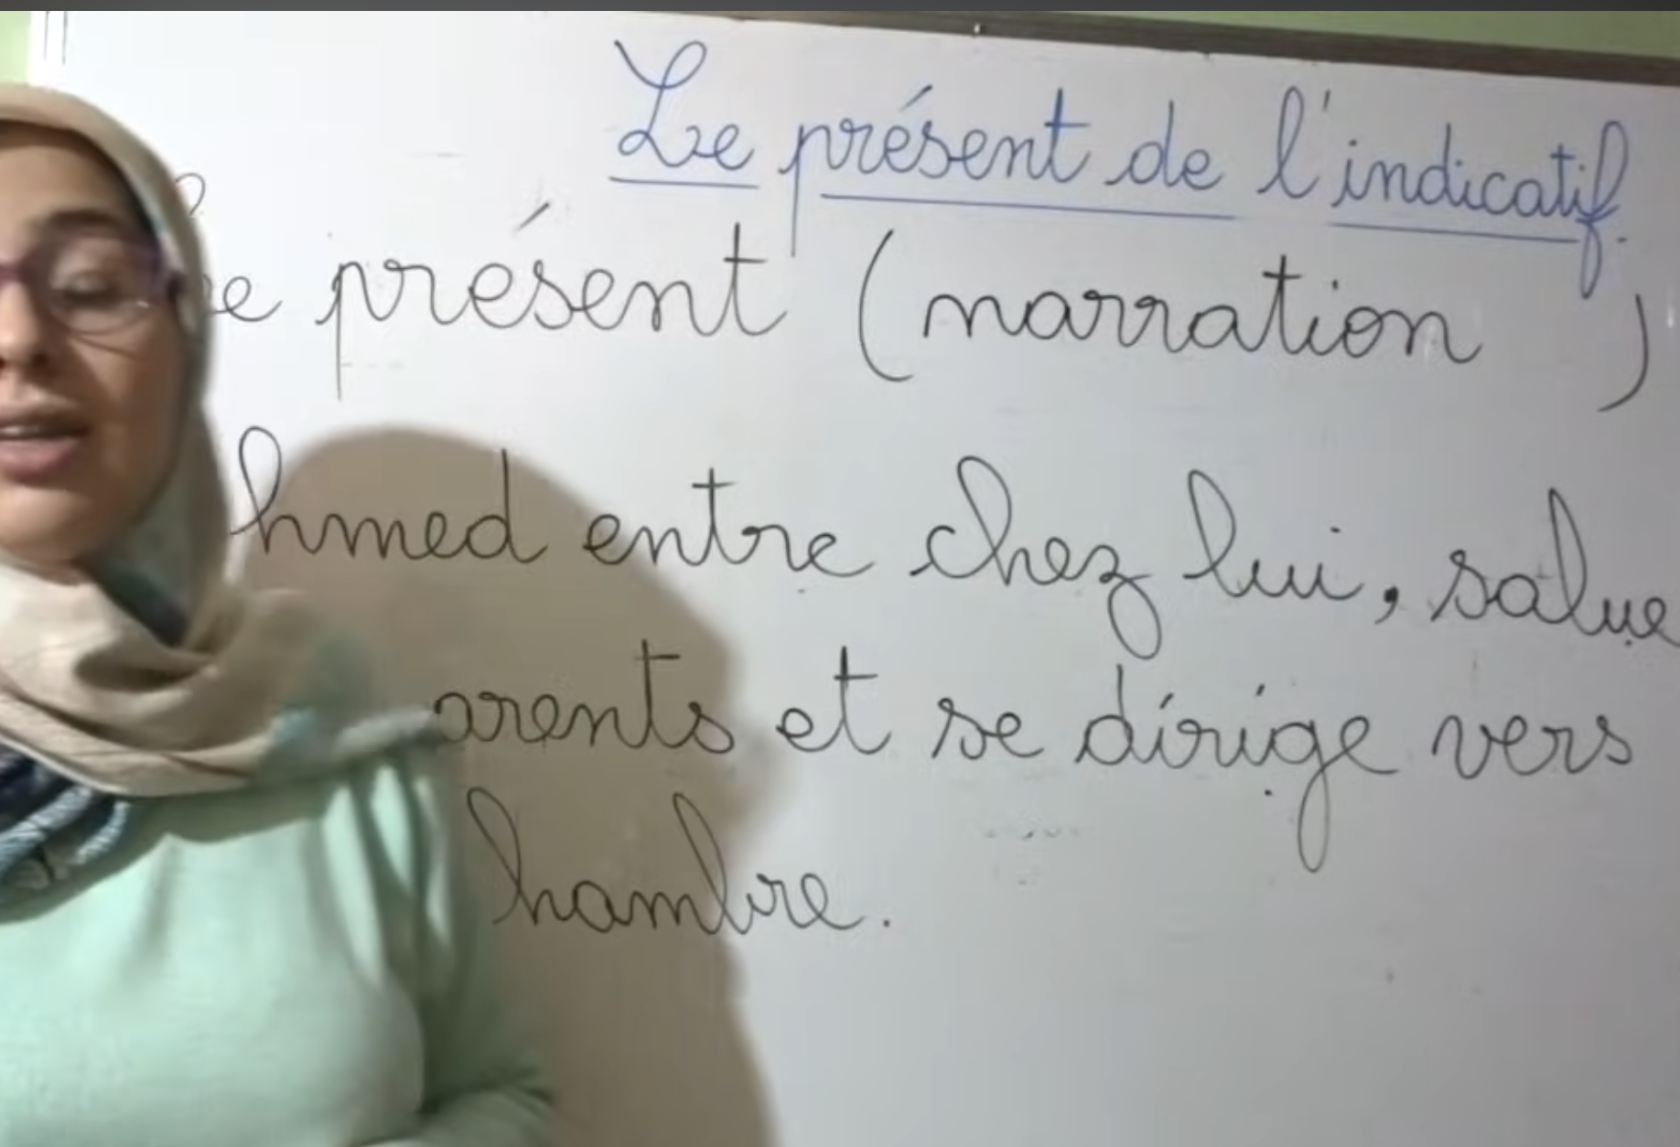 Le présent de l'indicatif.
présent (narration )
hmed entre chez lui, salue
arents et se dirige vers
hambre.